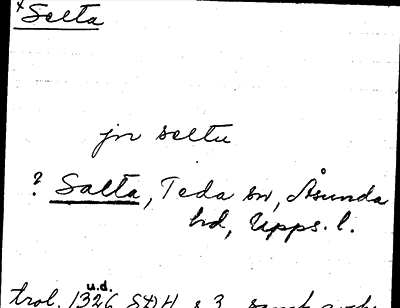 *Selta
jn seltu
? Salta, Teda sn, Åsunda
hd, Upps. l.
u.d.
trol. 1326 SDH s 3